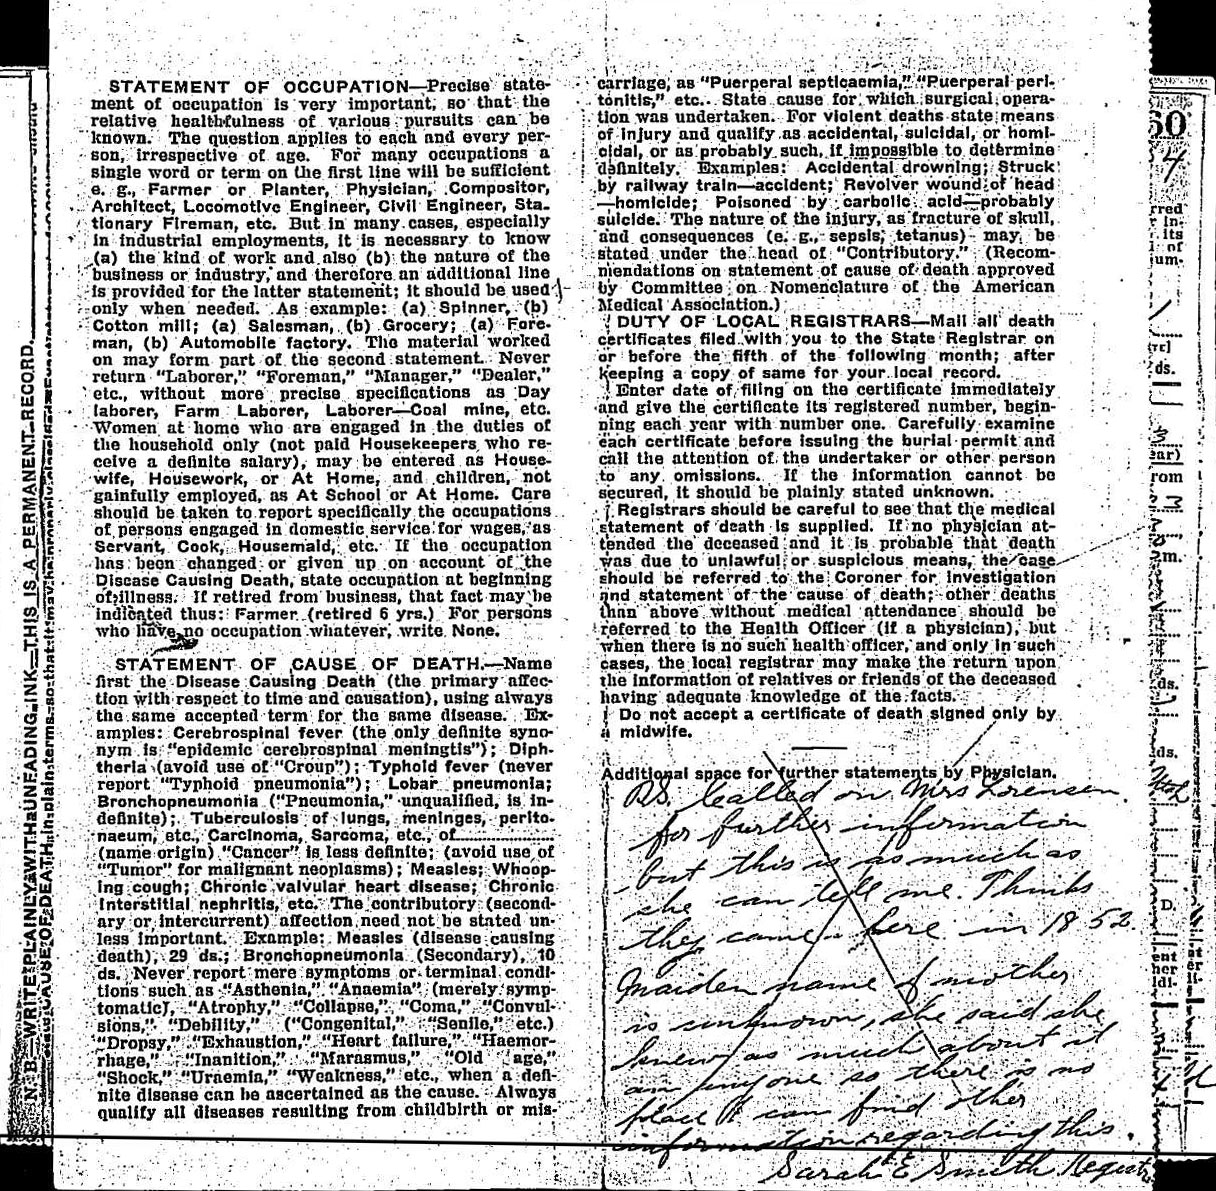 STATEMENT OF OCCUPATION—Precise state-
ment of occupation is very important, so that the
relative healthfulness of various pursuits can be
known. The question applies to each and every per-
son, irrespective of age. For many occupations a
single word or term on the first line will be sufficient
e. g., Farmer or Planter, Physician, Compositor,
Architect, Locomotive Engineer, Civil Engineer, Sta-
tionary Fireman, etc. But in many cases, especially
in industrial employments, it is necessary to know
(a) the kind of work and also (b) the nature of the
business or industry, and therefore an additional line
is provided for the latter statement; it should be used
only when needed. As example: (a) Spinner, (b)
Cotton mill; (a) Salesman, (b) Grocery; (a) Fore-
man, (b) Automobile factory. The material worked
on may form part of the second statement. Never
return "Laborer," "Foreman," "Manager," "Dealer,"
etc., without more precise specifications as Day
laborer, Farm Laborer, Laborer—Coal mine, etc.
Women at home who are engaged in the duties of
the household only (not paid Housekeepers who re-
ceive a definite salary), may be entered as House-
wife, Housework, or At Home, and children, not
gainfully employed, as At School or At Home. Care
should be taken to report specifically the occupations
of persons engaged in domestic service for wages, as
Servant, Cook, Housemaid, etc. If the occupation
has been changed or given up on account of the
Disease Causing Death, state occupation at beginning
of illness. If retired from business, that fact may be
indicated thus: Farmer (retired 6 yrs.) For persons
who have no occupation whatever, write None.
STATEMENT OF CAUSE OF DEATH.—Name
first the Disease Causing Death (the primary affec-
tion with respect to time and causation), using always
the same accepted term for the same disease. Ex-
amples: Cerebrospinal fever (the only definite syno-
nym is "epidemic cerebrospinal meningtis"); Diph-
theria (avoid use of "Croup"); Typhoid fever (never
report "Typhoid pneumonia"); Lobar pneumonia;
Bronchopneumonia ("Pneumonia," unqualified, is in-
definite); Tuberculosis of lungs, meninges, perito-
naeum, etc., Carcinoma, Sarcoma, etc., of
(name origin) "Cancer" is less definite; (avoid use of
"Tumor" for malignant neoplasms); Measles; Whoop-
ing cough; Chronic valvular heart disease; Chronic
Interstitial nephritis, etc. The contributory (second-
ary or intercurrent) affection need not be stated un-
less important. Example: Measles (disease causing
death), 29 ds.; Bronchopneumonia (Secondary), 10
ds. Never report mere symptoms or terminal condi-
tions such as "Asthenia," "Anaemia" (merely symp-
tomatic), "Atrophy," "Collapse," "Coma," "Convul-
sions," "Debility," ("Congenital," "Senile," etc.)
"Dropsy," "Exhaustion," "Heart failure," "Haemor-
rhage," "Inanition," "Marasmus," "Old age,"
"Shock," "Uraemia," "Weakness," etc., when a defi-
nite disease can be ascertained as the cause. Always
qualify all diseases resulting from childbirth or mis-
carriage, as "Puerperal septicaemia," "Puerperal peri-
tonitis," etc. State cause for which surgical opera-
tion was undertaken. For violent deaths state means
of injury and qualify as accidental, suicidal, or homi-
cidal, or as probably such, if impossible to determine
definitely. Examples: Accidental drowning; Struck
by railway train—accident; Revolver wound of head
—homicide; Poisoned by carbolic acid—probably
suicide. The nature of the injury, as fracture of skull,
and consequences (e. g., sepsis, tetanus) may be
stated under the head of "Contributory." (Recom-
mendations on statement of cause of death approved
by Committee on Nomenclature of the American
Medical Association.)
DUTY OF LOCAL REGISTRARS—Mail all death
certificates filed with you to the State Registrar on
or before the fifth of the following month; after
keeping a copy of same for your local record.
Enter date of filing on the certificate immediately
and give the certificate its registered number, begin-
ning each year with number one. Carefully examine
each certificate before issuing the burial permit and
call the attention of the undertaker or other person
to any omissions. If the information cannot be
secured, it should be plainly stated unknown.
Registrars should be careful to see that the medical
statement of death is supplied. If no physician at-
tended the deceased and it is probable that death
was due to unlawful or suspicious means, the case
should be referred to the Coroner for investigation
and statement of the cause of death; other deaths
than above without medical attendance should be
referred to the Health Officer (if a physician), but
when there is no such health officer, and only in such
cases, the local registrar may make the return upon
the information of relatives or friends of the deceased
having adequate knowledge of the facts.
Do not accept a certificate of death signed only by
a midwife.
Additional space for further statements by Physician.
P.S. Called on Mrs Lorensen
for further information
but this is as much as
she can tell me. Thinks
they came here in 1852.
Maiden name of mother
is unknown, she said she
knew as much about it
as anyone so there is no
place I can find other
information regarding this.
Sarah E Smith Regist
N. B.—WRITE PLAINLY WITH UNFADING INK—THIS IS A PERMANENT RECORD.
CAUSE OF DEATH in plain terms, so that it may be properly classified.